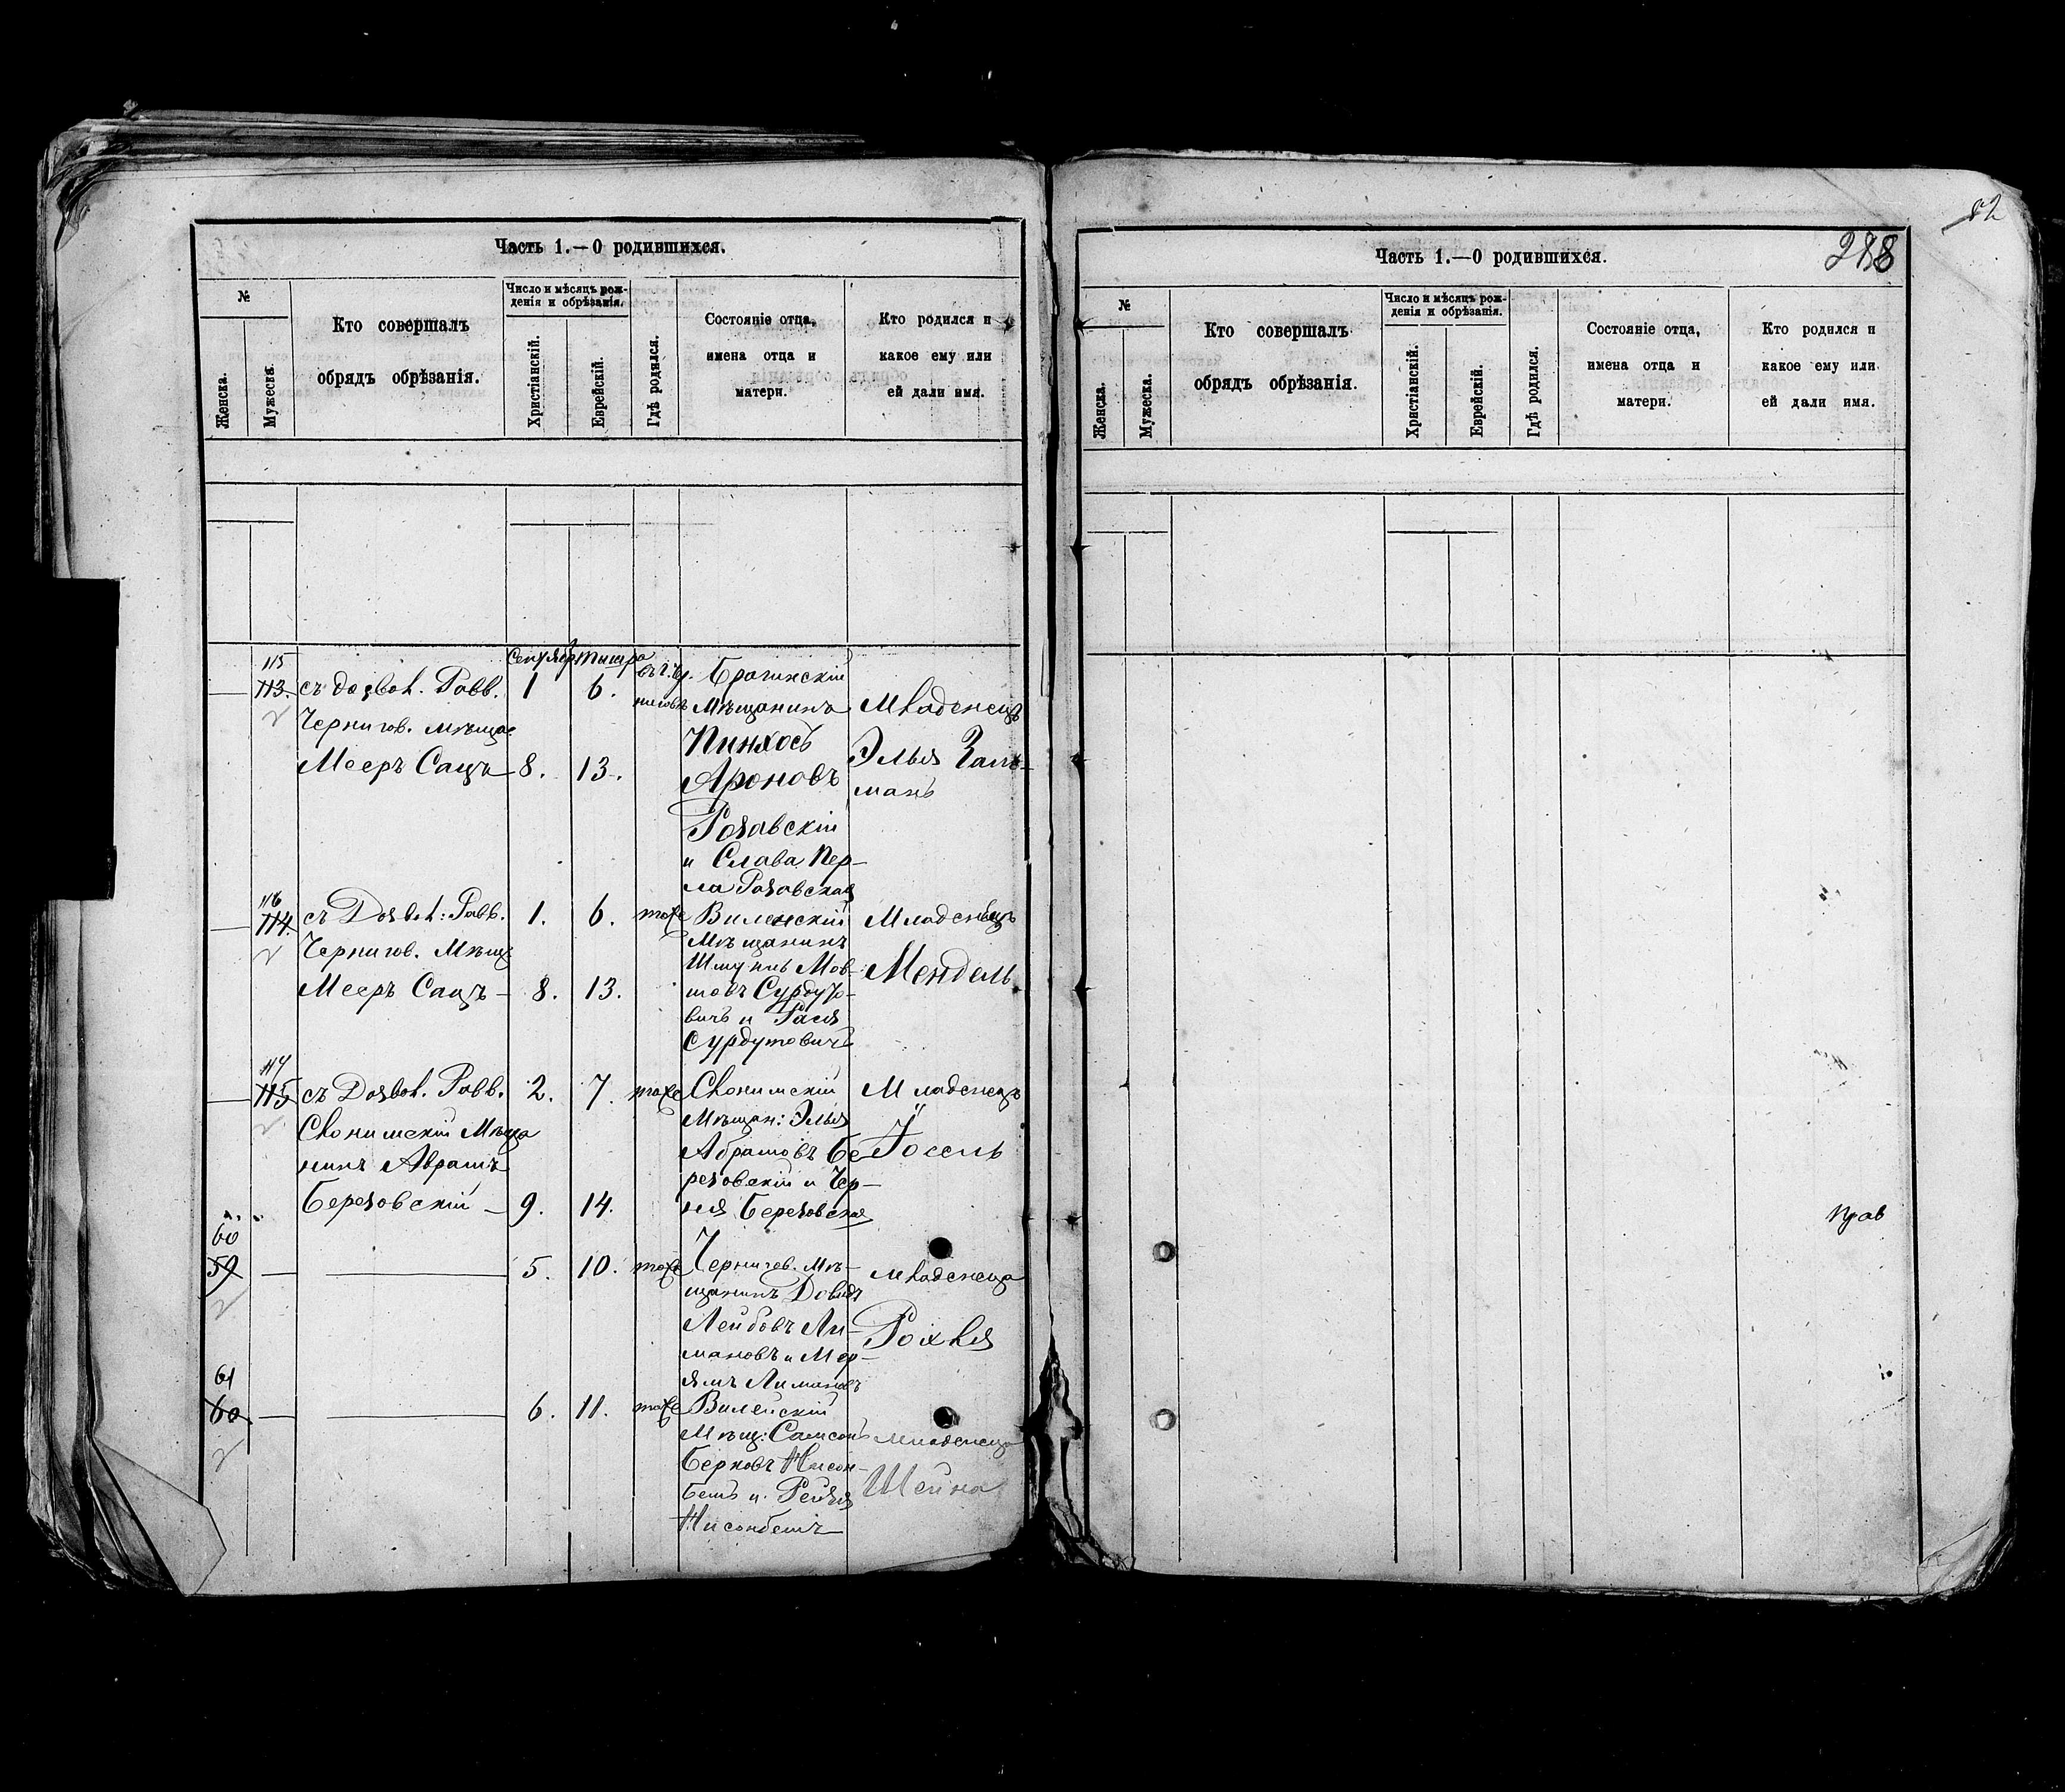 Часть 1.—О родившихся.
№
Женска.
Мужеска.
Кто совершалъ
обрядъ обрѣзанія.
Число и мѣсяцъ рож-
денія и обрѣзанія.
Христіанскій.
Еврейскій.
Гдѣ родился.
Состояніе отца,
имена отца и
матери.
Кто родился и
какое ему или
ей дали имя.
115
113.
съ дозвол. Равв.
Чернигов. мѣща-
Мееръ Сацъ
1
8.
6.
13.
въ г. Чер-
ниговѣ
Брагинскій
Мѣщанинъ
Пинхосъ
Ароновъ
и Слава Пер-
ла
Младенецъ
Элья Залк-
манъ
116
114.
съ Дозвол: Равв.
Чернигов. Мѣщ
Мееръ Сацъ
1.
8.
6.
13.
тоже
Виленскій
Мѣщанинъ
Шмуиль Мов-
шовъ Сурдуто-
вичъ и Рася
Сурдутовичъ
Младенецъ
Мендель
117
115
съ Дозвол. Равв.
Слонимскій Мѣща
нинъ Аврамъ
Березовскій
2.
9.
7.
14.
тоже
Слонимскій
Мѣщан: Элья
Абрамовъ Бе
резовскій и Чер-
ня Березовская
Младенецъ
Іосель
60
59
5.
10.
тоже
Чернигов. Мѣ-
щанинъ Довидъ
Лейбовъ Ли-
мановъ и Мер-
ямъ Лимановъ
Младенца
Рохля
61
60
6.
11.
тоже
Вилейскій
Мѣщ: Самсонъ
Берковъ Нисон-
бемъ и Рейзя
Нисонбемъ
младенца
Шейна
82
288
Часть 1.—О родившихся.
№
Женска.
Мужеска.
Кто совершалъ
обрядъ обрѣзанія.
Число и мѣсяцъ рож-
денія и обрѣзанія.
Христіанскій.
Еврейскій.
Гдѣ родился.
Состояніе отца,
имена отца и
матери.
Кто родился и
какое ему или
ей дали имя.